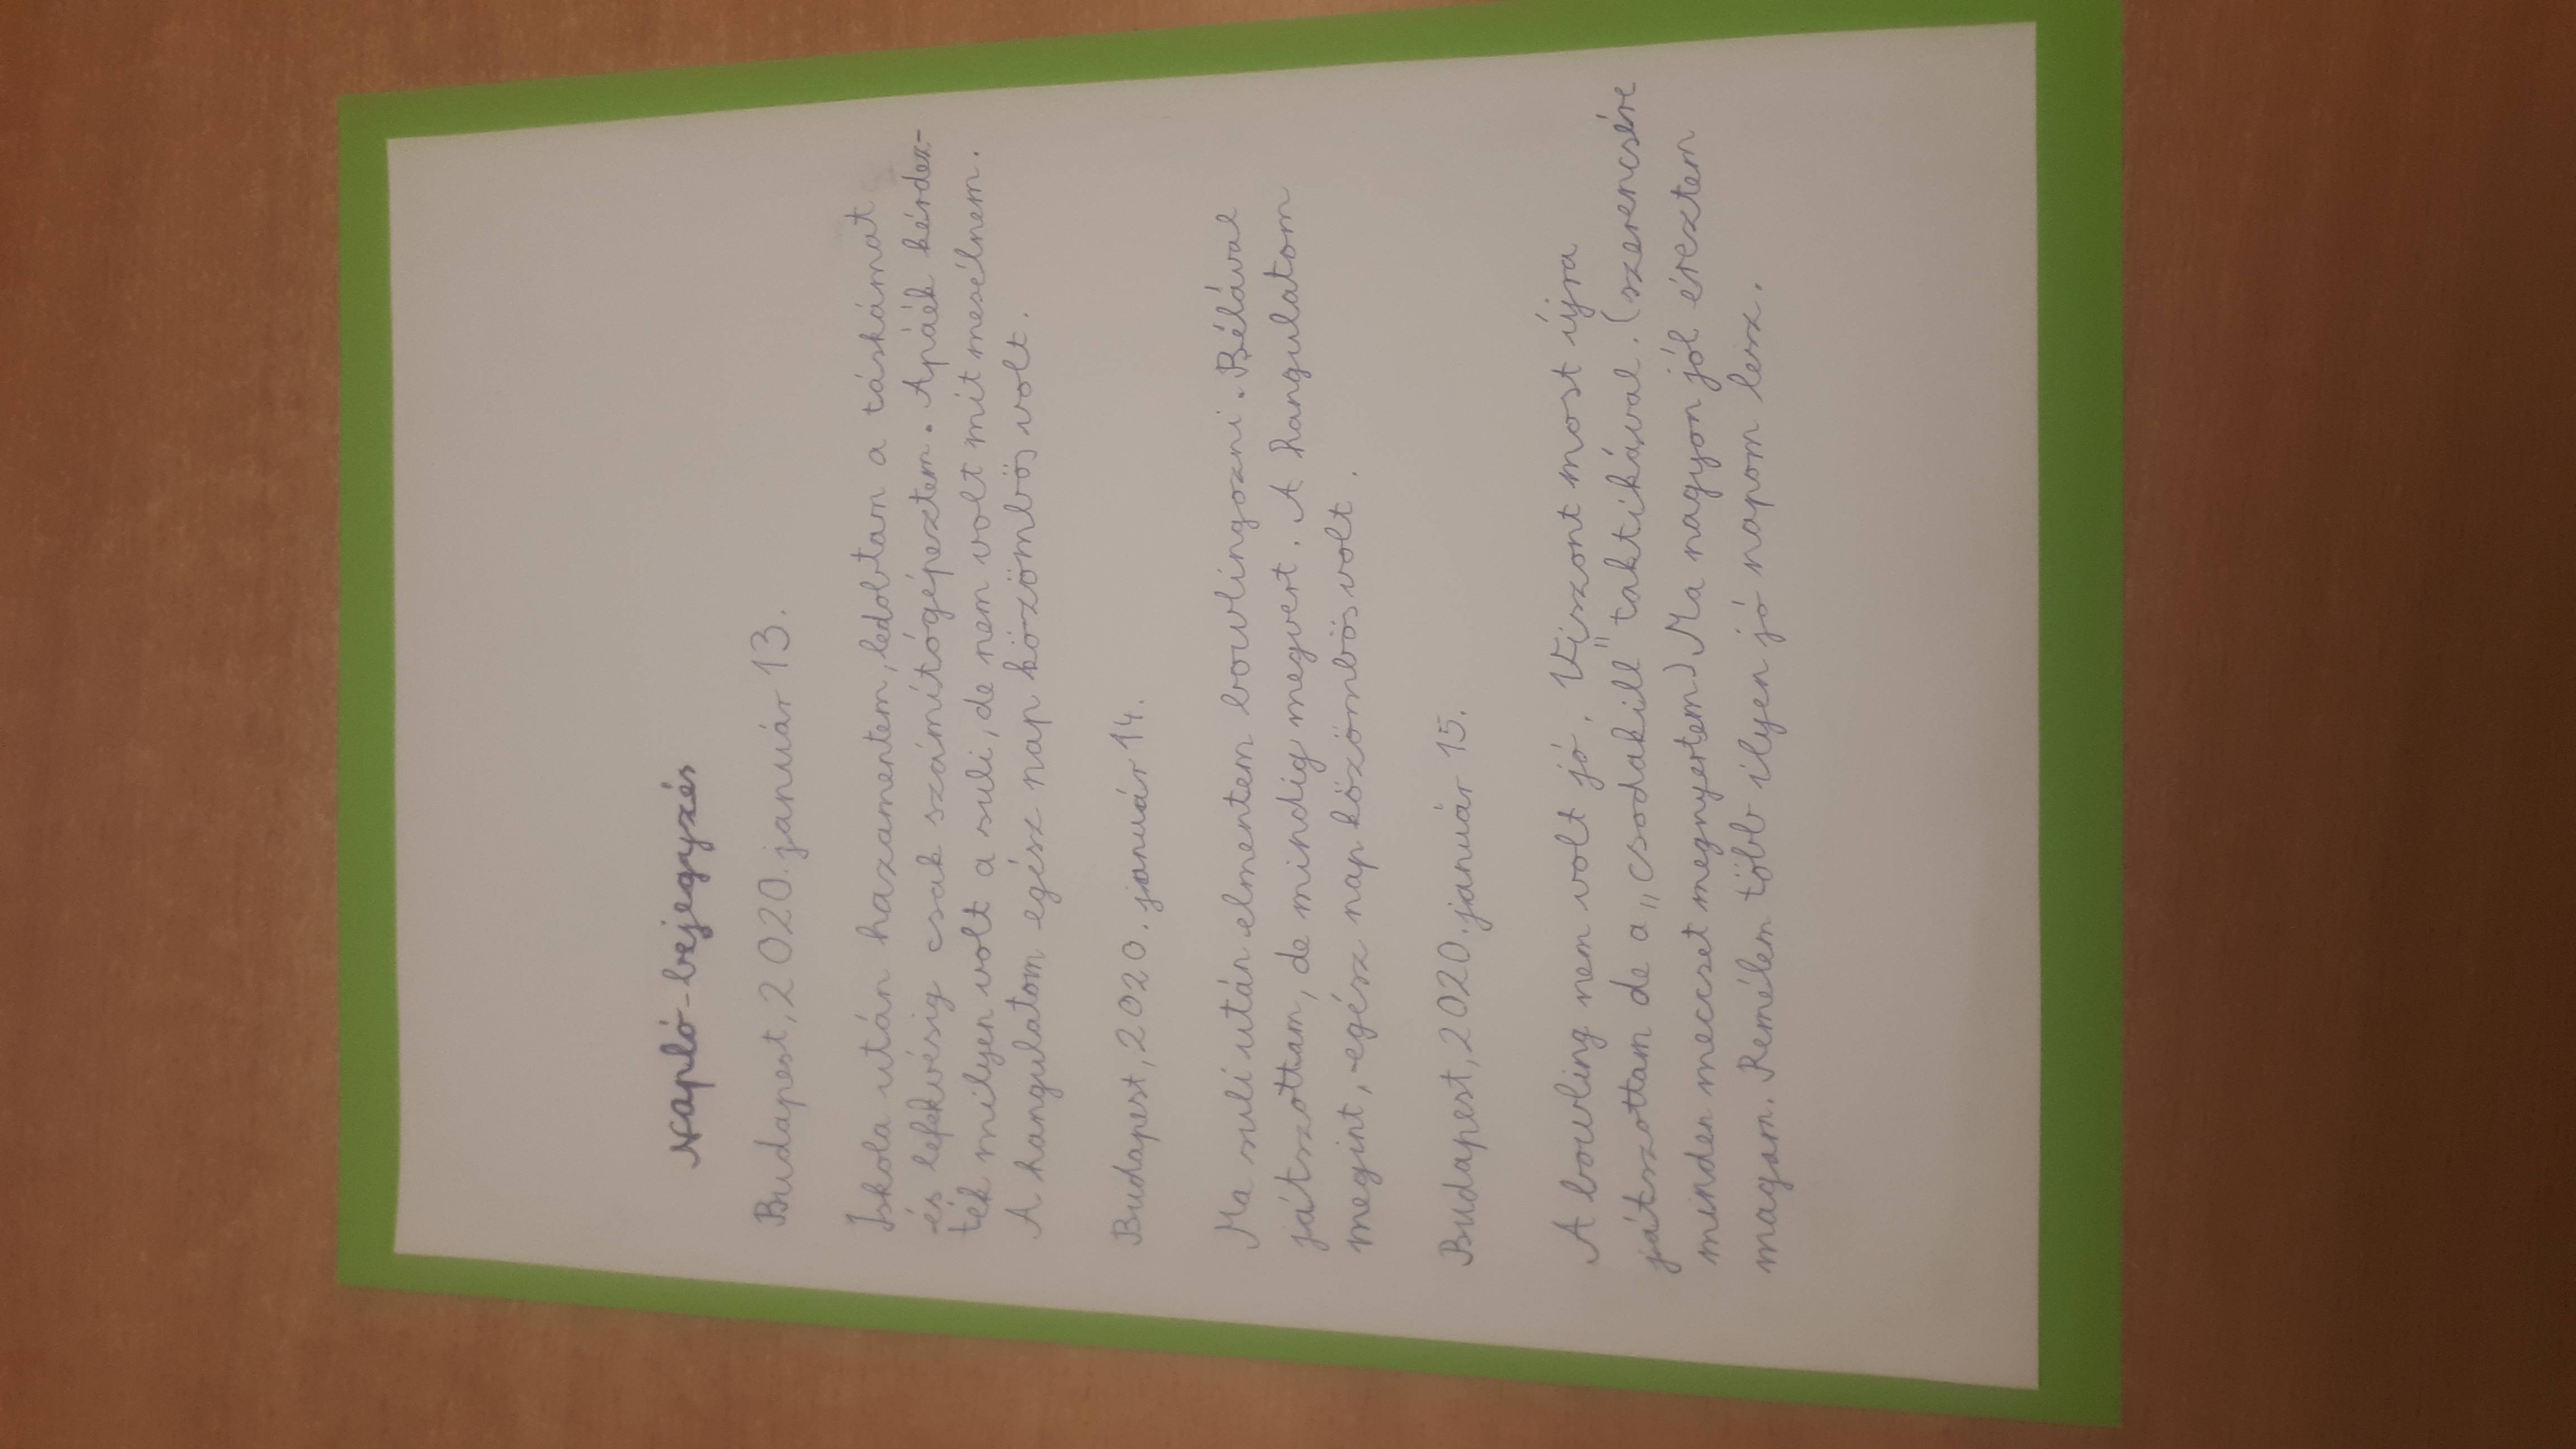 Napló-bejegyzés
Budapest, 2020. január 13.
Iskola után hazamentem, ledobtam a táskámat
és lefekvésig csak számítógépeztem. Apáék kérdez-
ték milyen volt a suli, de nem volt mit mesélnem.
A hangulatom egész nap közömbös volt.
Budapest, 2020. január 14.
Ma suli után elmentem bowlingozni. Bélával
játszottam, de mindig megvert. A hangulatom
megint, egész nap közömbös volt.
Budapest, 2020. január 15.
A bowling nem volt jó. Viszont most újra
játszottam de a „csodakill" taktikával. (szerencsére
minden meccset megnyertem) Ma nagyon jól éreztem
magam. Remélem több ilyen jó napom lesz.